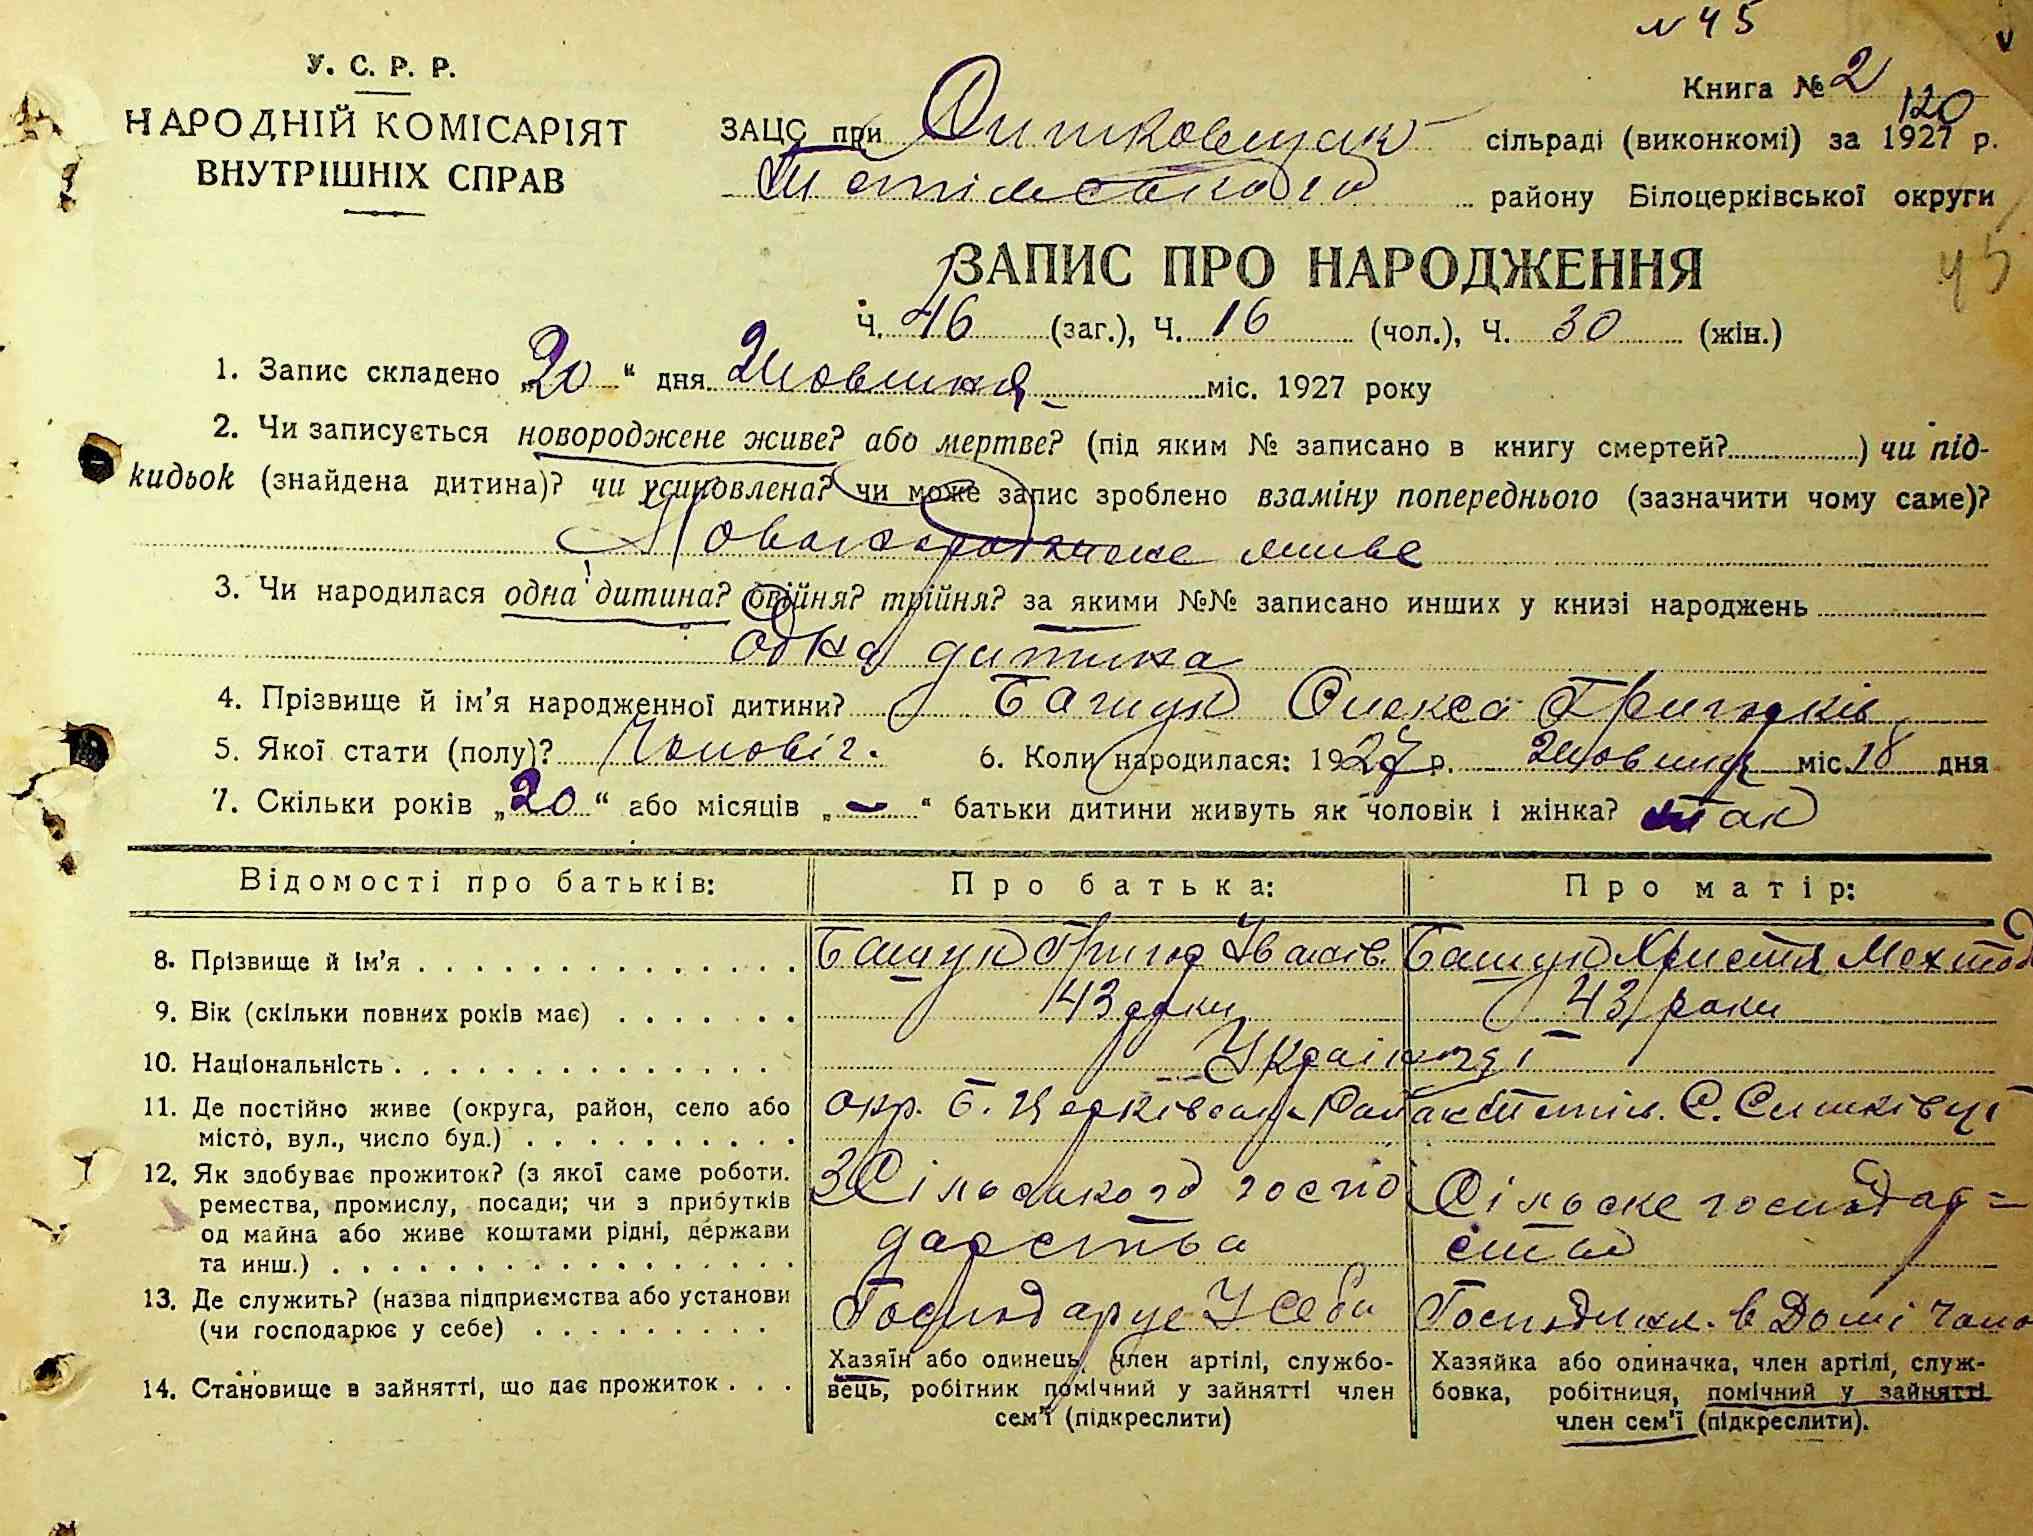 № 45
У. С. Р. Р.
НАРОДНІЙ КОМІСАРІЯТ
ВНУТРІШНІХ СПРАВ
Книга № 2
120
ЗАЦС при сільраді (виконкомі) за 1927 р.
Тетіївського району Білоцерківської округи
45
ЗАПИС ПРО НАРОДЖЕННЯ
Ч. 46 (заг.), Ч. 16 (чол.), Ч. 30 (жін.)
1. Запис складено „20“ дня Жовтня міс. 1927 року
2. Чи записується новороджене живе? або мертве? (під яким № записано в книгу смертей?) чи під-
кидьок (знайдена дитина)? чи усиновлена? чи може запис зроблено взаміну попереднього (зазначити чому саме)?
живе
3. Чи народилася одна дитина? двійня? трійня? за якими №№ записано инших у книзі народжень
Одна дитина
4. Прізвище й ім'я народженної дитини? Башук Олекса Григорків
5. Якої стати (полу)? Чоловіч. 6. Коли народилася: 1927 р. Жовтня міс. 18 дня
7. Скільки років „20“ або місяців „—“ батьки дитини живуть як чоловік і жінка? так
Відомості про батьків: Про батька: Про матір:
8. Прізвище й ім'я Башук Григор Іванів. Башук Христя
9. Вік (скільки повних років має) 43 роки 43 роки
10. Національність Українці
11. Де постійно живе (округа, район, село або окр. Б. Церківська Район Тетіїв. С.
місто, вул., число буд.)
12. Як здобуває прожиток? (з якої саме роботи. З Сільського госпо Сільске господар=
ремества, промислу, посади; чи з прибутків
од майна або живе коштами рідні, держави дарства ство
та инш.)
13. Де служить? (назва підприємства або установи Господарує У Себе в Домі
(чи господарює у себе)
14. Становище в зайнятті, що дає прожиток
Хазяїн або одинець, член артілі, службо-
вець, робітник помічний у зайнятті член
сем'ї (підкреслити)
Хазяйка або одиначка, член артілі, служ-
бовка, робітниця, помічний у зайнятті
член сем'ї (підкреслити).